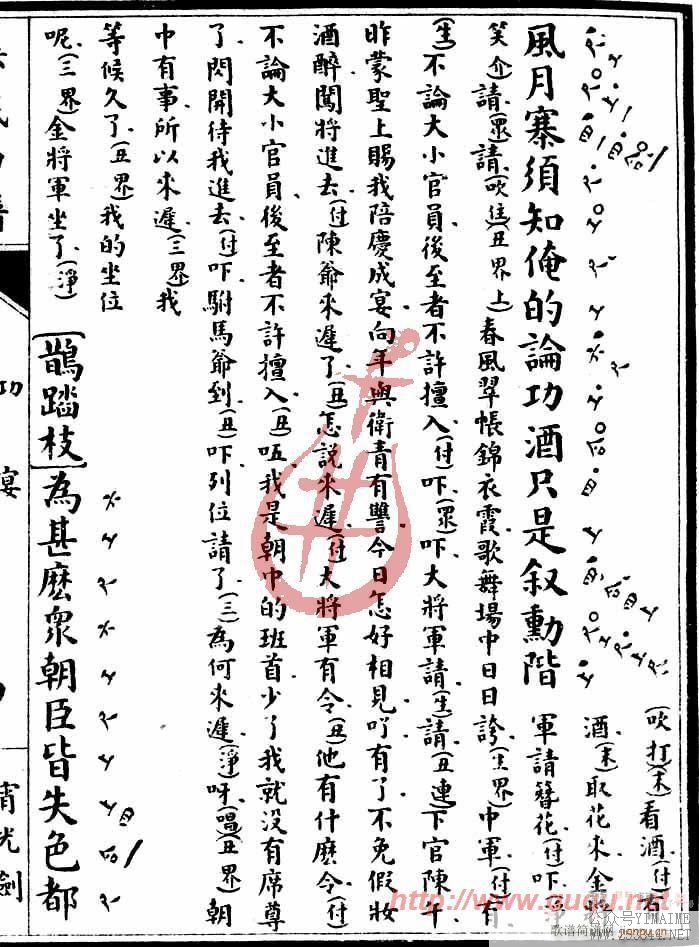 風月寨須知俺的論功酒只是叙勳階
(吹打)(末)看酒(付)有
酒(末)取花來金將
軍請簪花(付)吓
笑介請(眾)請(吹住)(丑界上)春風翠帳錦衣霞歌舞場中日日誇(生界)中軍(付)有
(生)不論大小官員後至者不許擅入(付)吓(眾)吓大將軍請(生)請(丑連)下官陳午
昨蒙聖上賜我陪慶成宴向年與衛青有讐今日怎好相見吖有了不免假妝
酒醉闖將進去(付)陳爺來遲了(丑)怎説來遲(付)大將軍有令(丑)他有什麽令(付)
不論大小官員後至者不許擅入(丑)㕶我是朝中的班首少了我就没有席尊
了閃開待我進去(付)吓駙馬爺到(丑)吓列位請了(三)為何來遲(淨)呀(唱)(丑界)朝
中有事所以來遲(三界)我
等候久了(丑界)我的坐位
呢(三界)金將軍坐了(淨)
[鵲踏枝]為甚麽衆朝臣皆失色都
功
宴
霄光劍
http://www.guqu.net
歌谱简谱网 jianpu.cn
公众号YIMAIME